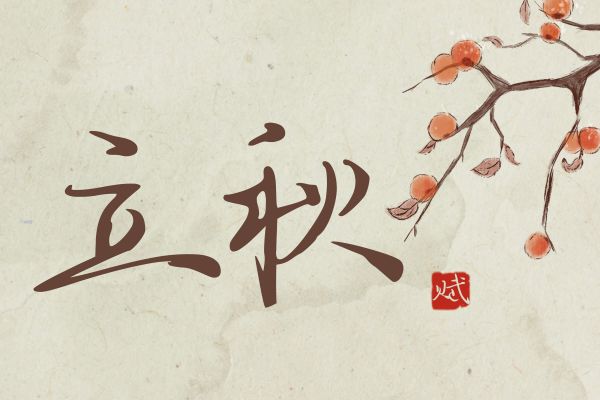 立秋
赋